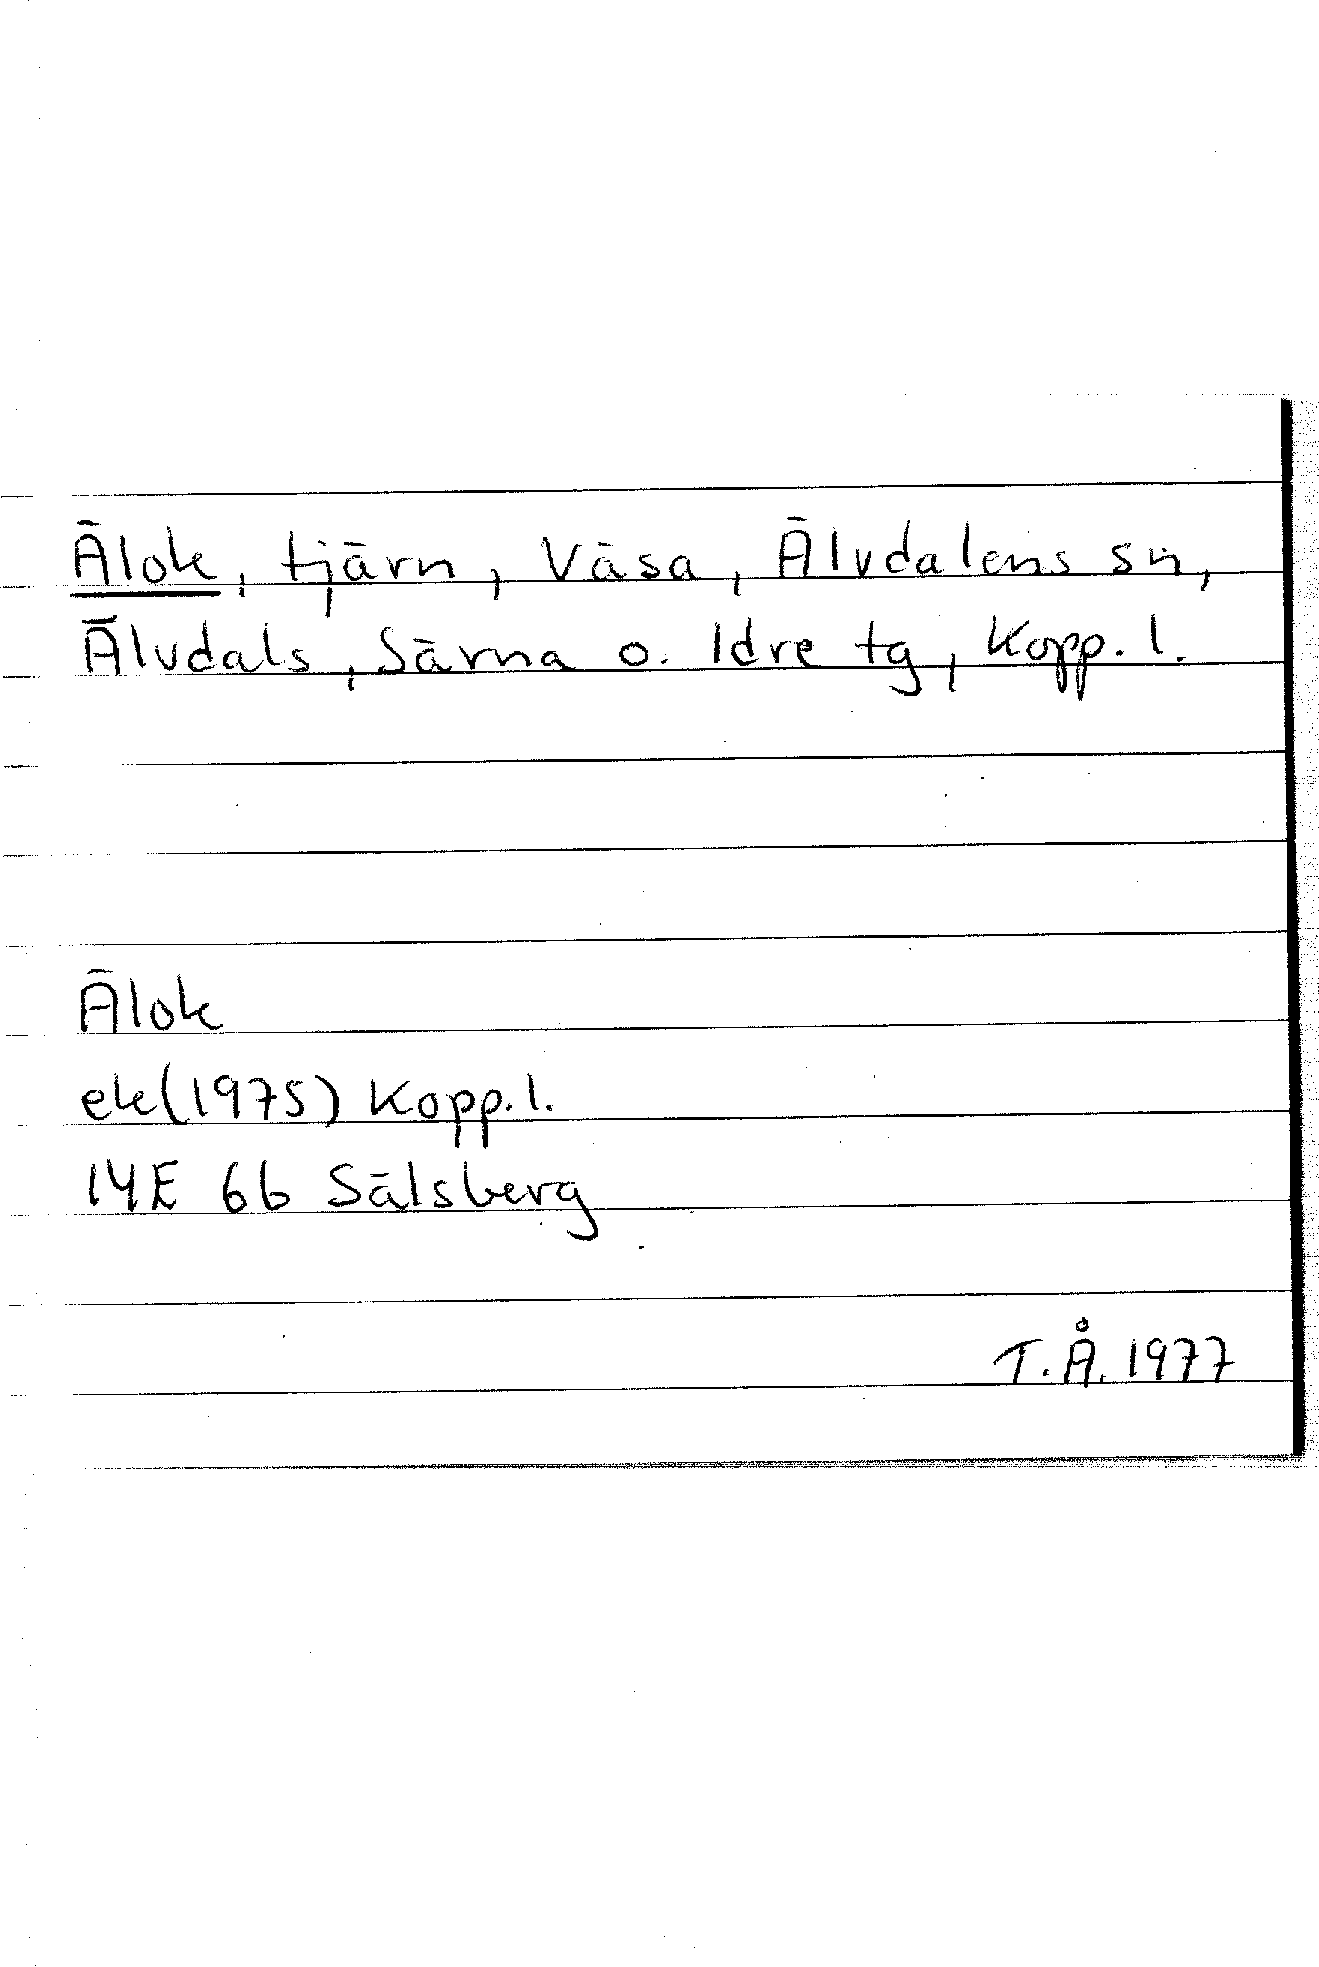 Älok, tjärn, Våsa, Älvdalens sn,
Älvdals, Särna o. Idre tg, Kopp. l.
Älok
ek(1975) Kopp. l.
14E 6b Sälsberg
T.Å. 1977